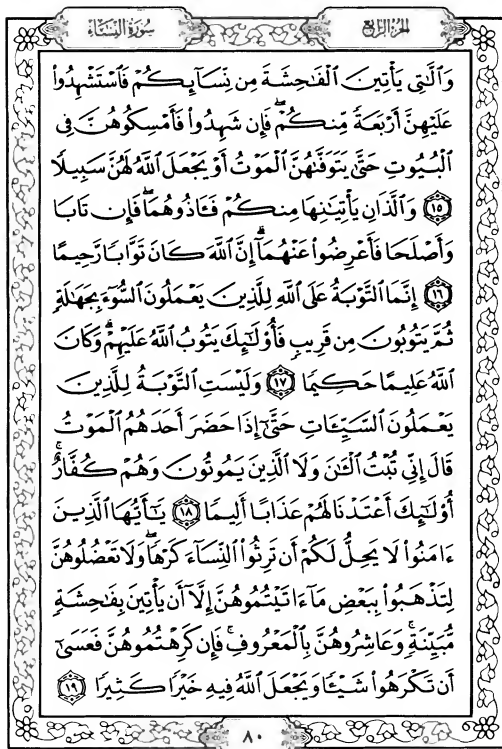 سُورَةُ النِّسَاءِ
الجزء الرابع
وَٱلَّٰتِى يَأْتِينَ ٱلْفَٰحِشَةَ مِن نِّسَآئِكُمْ فَٱسْتَشْهِدُوا۟
عَلَيْهِنَّ أَرْبَعَةً مِّنكُمْ ۖ فَإِن شَهِدُوا۟ فَأَمْسِكُوهُنَّ فِى
ٱلْبُيُوتِ حَتَّىٰ يَتَوَفَّىٰهُنَّ ٱلْمَوْتُ أَوْ يَجْعَلَ ٱللَّهُ لَهُنَّ سَبِيلًا
١٥ وَٱلَّذَانِ يَأْتِيَٰنِهَا مِنكُمْ فَـَٔاذُوهُمَا ۖ فَإِن تَابَا
وَأَصْلَحَا فَأَعْرِضُوا۟ عَنْهُمَآ ۗ إِنَّ ٱللَّهَ كَانَ تَوَّابًا رَّحِيمًا
١٦ إِنَّمَا ٱلتَّوْبَةُ عَلَى ٱللَّهِ لِلَّذِينَ يَعْمَلُونَ ٱلسُّوٓءَ بِجَهَٰلَةٍ
ثُمَّ يَتُوبُونَ مِن قَرِيبٍ فَأُو۟لَٰٓئِكَ يَتُوبُ ٱللَّهُ عَلَيْهِمْ ۗ وَكَانَ
ٱللَّهُ عَلِيمًا حَكِيمًا ١٧ وَلَيْسَتِ ٱلتَّوْبَةُ لِلَّذِينَ
يَعْمَلُونَ ٱلسَّيِّـَٔاتِ حَتَّىٰٓ إِذَا حَضَرَ أَحَدَهُمُ ٱلْمَوْتُ
قَالَ إِنِّى تُبْتُ ٱلْـَٰٔنَ وَلَا ٱلَّذِينَ يَمُوتُونَ وَهُمْ كُفَّارٌ ۚ
أُو۟لَٰٓئِكَ أَعْتَدْنَا لَهُمْ عَذَابًا أَلِيمًا ١٨ يَٰٓأَيُّهَا ٱلَّذِينَ
ءَامَنُوا۟ لَا يَحِلُّ لَكُمْ أَن تَرِثُوا۟ ٱلنِّسَآءَ كَرْهًا ۖ وَلَا تَعْضُلُوهُنَّ
لِتَذْهَبُوا۟ بِبَعْضِ مَآ ءَاتَيْتُمُوهُنَّ إِلَّآ أَن يَأْتِينَ بِفَٰحِشَةٍ
مُّبَيِّنَةٍ ۚ وَعَاشِرُوهُنَّ بِٱلْمَعْرُوفِ ۚ فَإِن كَرِهْتُمُوهُنَّ فَعَسَىٰٓ
أَن تَكْرَهُوا۟ شَيْـًٔا وَيَجْعَلَ ٱللَّهُ فِيهِ خَيْرًا كَثِيرًا ١٩
٨٠